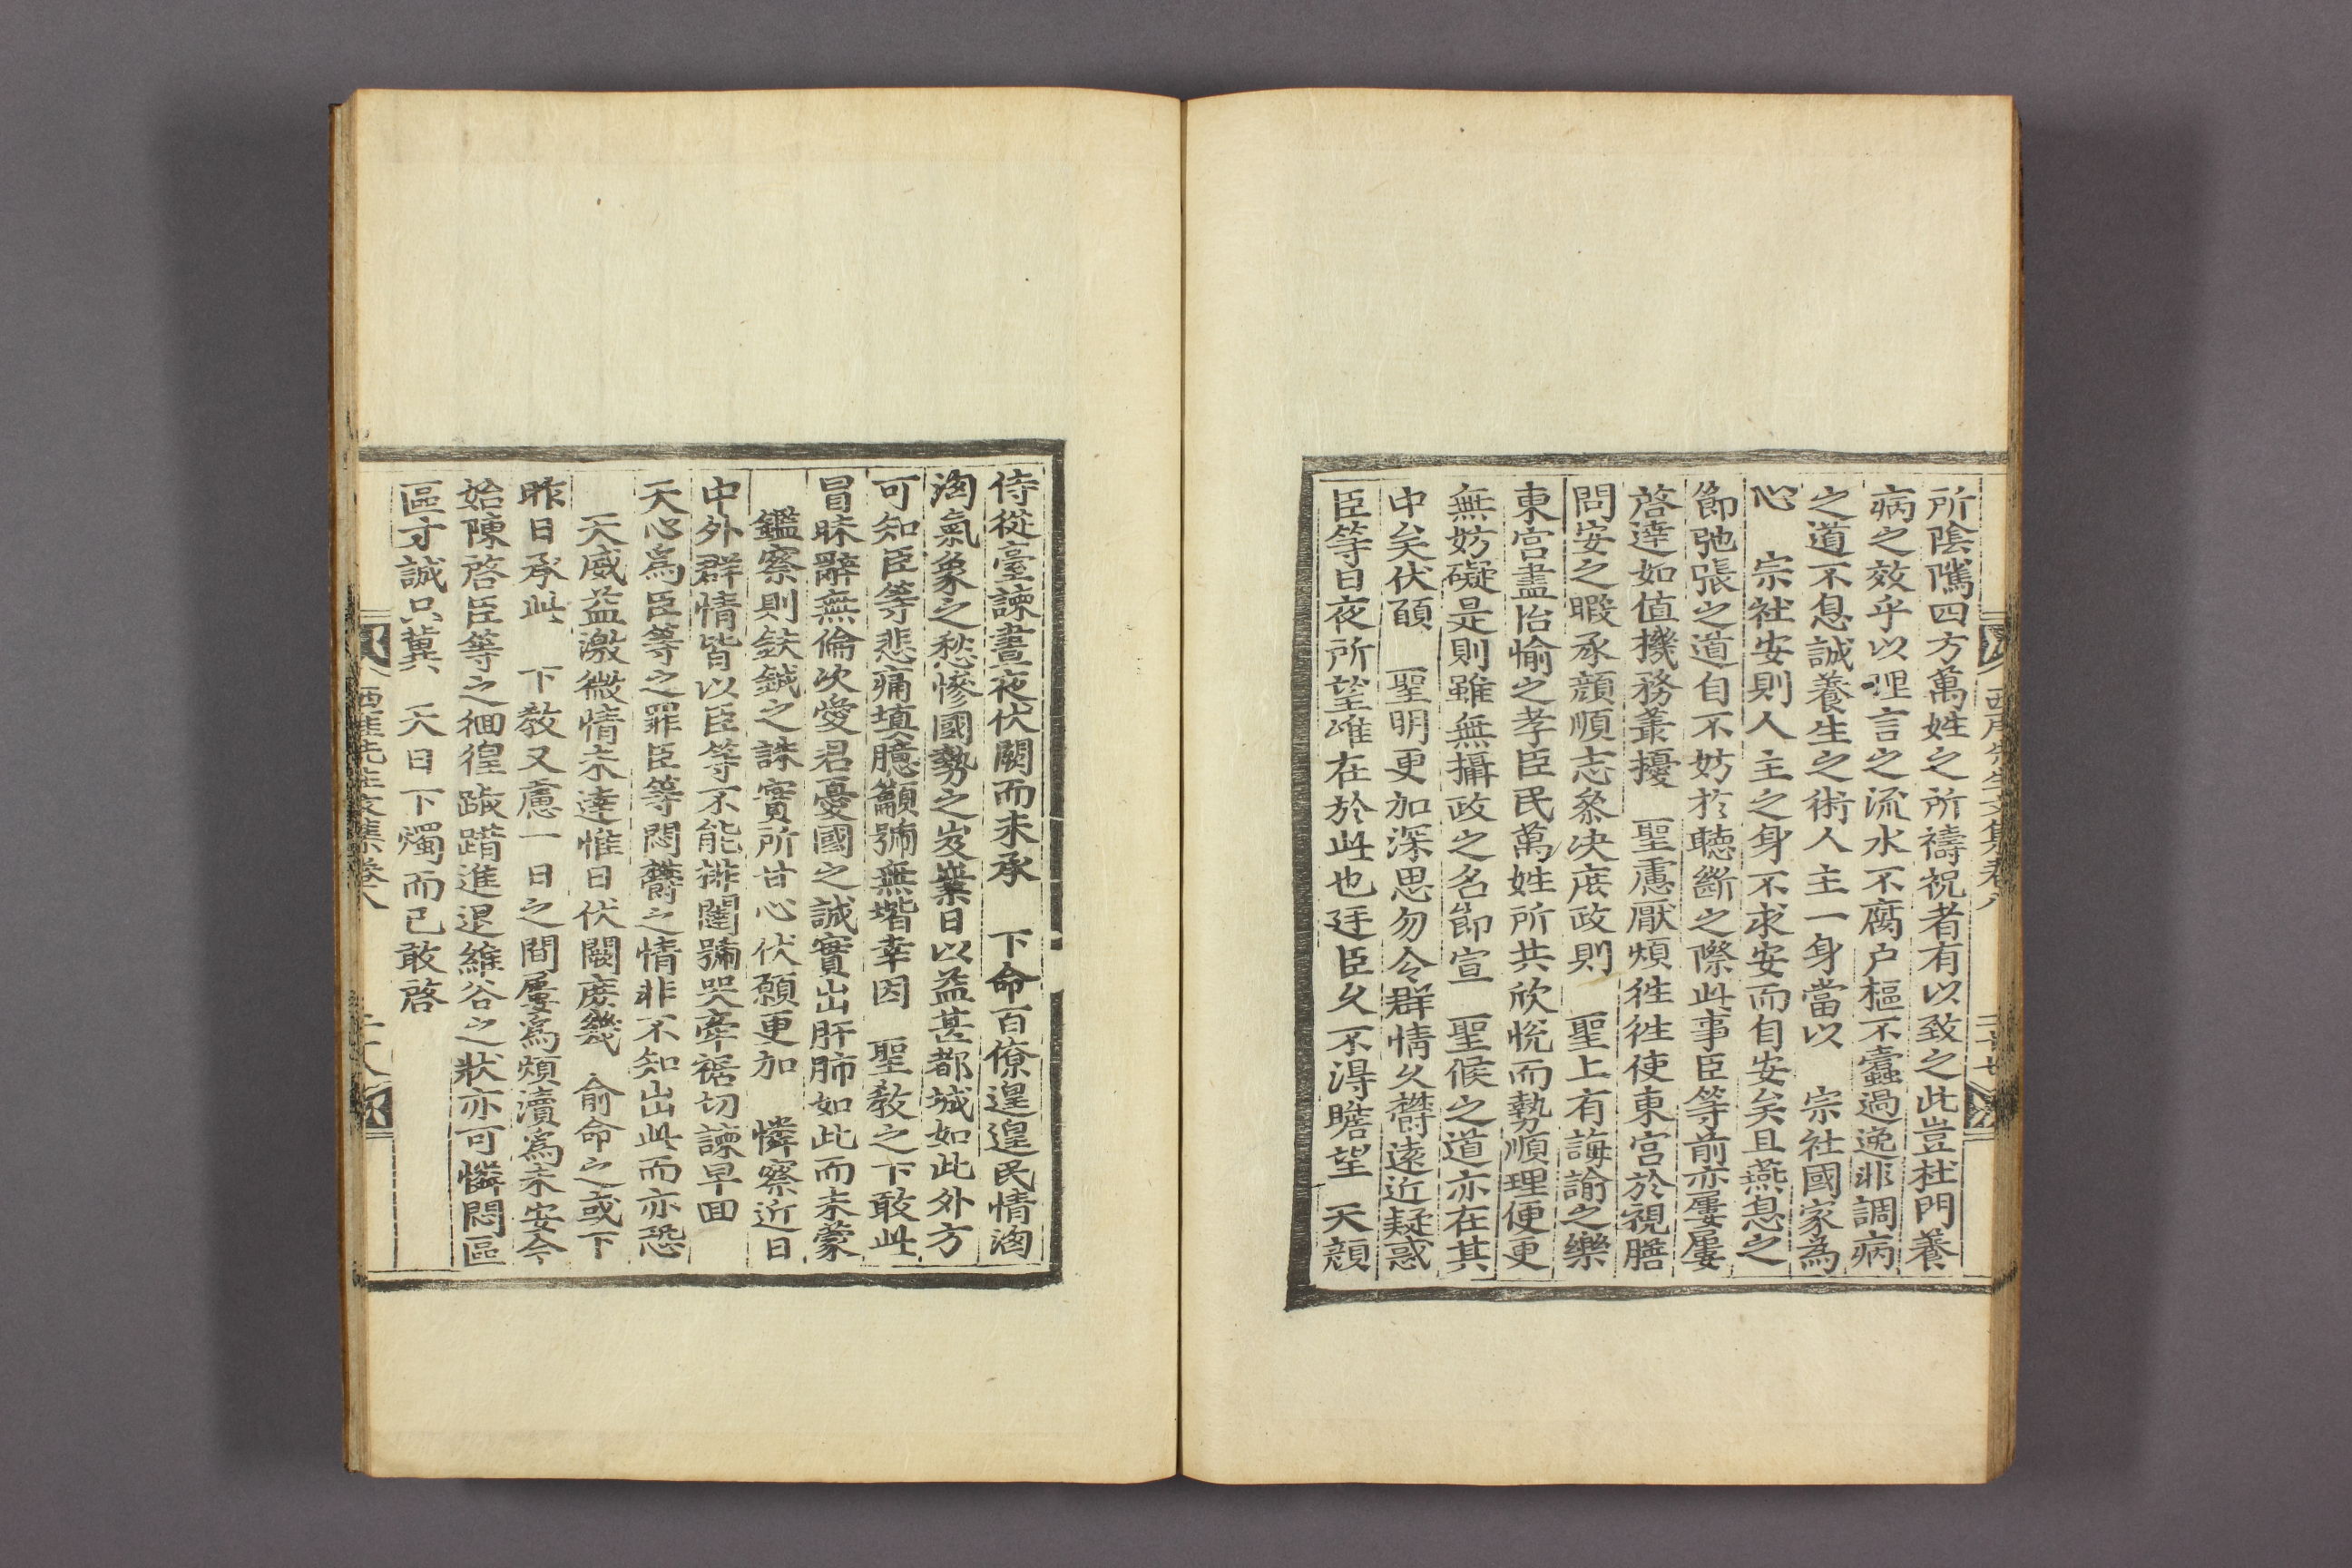 所陰隲四方萬姓之所禱祝者有以致之此豈杜門養
病之效乎以理言之流水不腐户樞不蠹過逸非調病
之道不息誠養生之術人主一身當以　宗社國家為
心　宗社安則人主之身不求安而自安矣且燕息之
節弛張之道自不妨於聽斷之際此事臣等前亦屢屢
啓達如值機務叢擾　聖慮厭煩徃徃使東宮於視膳
問安之暇承顔順志叅决庶政則　聖上有誨諭之樂
東宮盡怡愉之孝臣民萬姓所共欣悅而勢順理便更
無妨礙是則雖無攝政之名節宣　聖候之道亦在其
中矣伏願　聖明更加深思勿令群情久欝遠近疑惑
臣等日夜所望唯在於此也廷臣久不得瞻望　天顔
侍從臺諫晝夜伏闕而未承　下命百僚遑遑民情洶
洶氣象之愁慘國勢之岌嶪日以益甚都城如此外方
可知臣等悲痛填臆籲號無堦幸因　聖教之下敢此
冒昧辭無倫次愛君憂國之誠實出肝肺如此而未蒙
鑑察則鈇鉞之誅實所甘心伏願更加　憐察近日
中外群情皆以臣等不能排闥號哭牽裾切諫早回
天心為臣等之罪臣等悶欝之情非不知出此而亦恐
天威益激微情未達惟日伏闕庶幾　俞命之或下
昨日承此　下教又慮一日之間屢為煩瀆為未安今
始陳啓臣等之徊徨踧踖進退維谷之狀亦可憐悶區
區寸誠只冀　天日下燭而已敢啓
西厓先生文集卷八